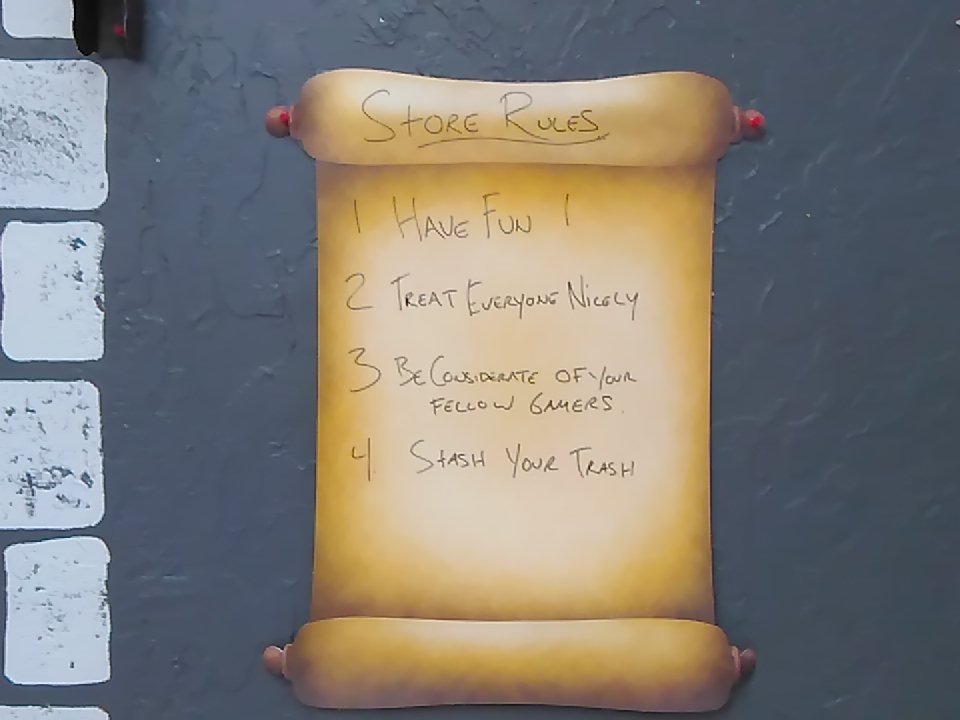 STORE RULES
1 HAVE FUN !
2 TREAT EVERYONE NICELY
3 BE CONSIDERATE OF YOUR
FELLOW GAMERS.
4 STASH YOUR TRASH